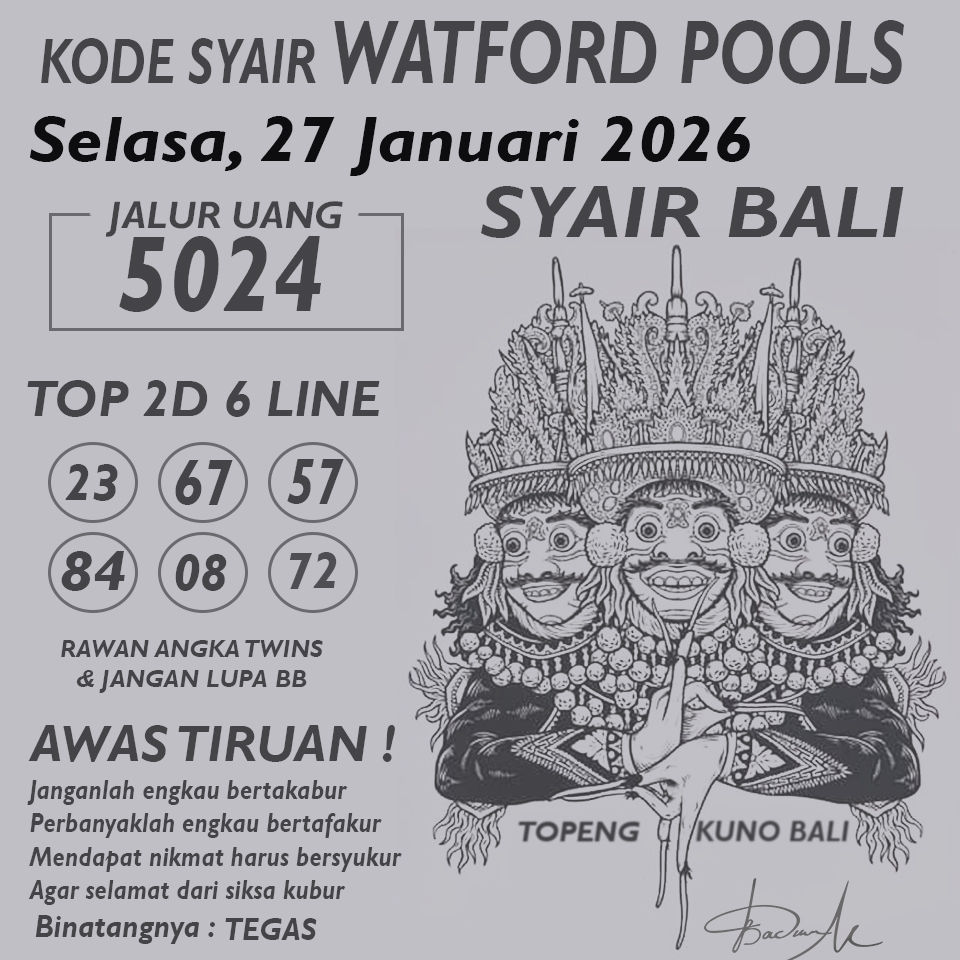 KODE SYAIR WATFORD POOLS
Selasa, 27 Januari 2026
SYAIR BALI
JALUR UANG
5024
TOP 2D 6 LINE
23 67 57
84 08 72
RAWAN ANGKA TWINS
& JANGAN LUPA BB
AWAS TIRUAN !
Janganlah engkau bertakabur
Perbanyaklah engkau bertafakur
Mendapat nikmat harus bersyukur
Agar selamat dari siksa kubur
Binatangnya : TEGAS
TOPENG KUNO BALI